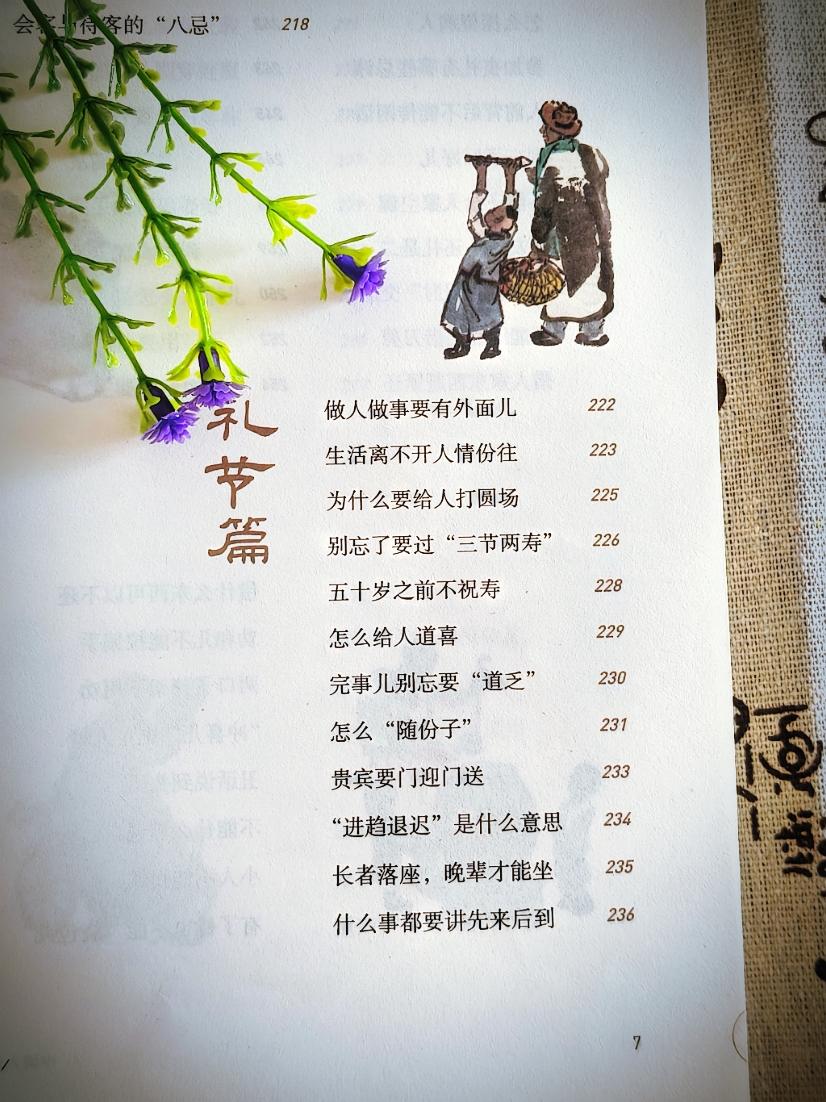 会客与待客的“八忌” 218
礼节篇
做人做事要有外面儿 222
生活离不开人情份往 223
为什么要给人打圆场 225
别忘了要过“三节两寿” 226
五十岁之前不祝寿 228
怎么给人道喜 229
完事儿别忘要“道乏” 230
怎么“随份子” 231
贵宾要门迎门送 233
“进趋退迟”是什么意思 234
长者落座，晚辈才能坐 235
什么事都要讲先来后到 236
7